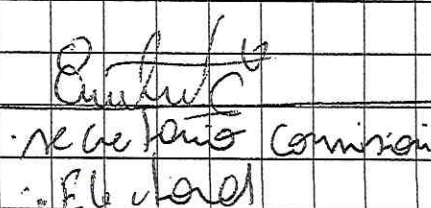 secretario comision
Electoral